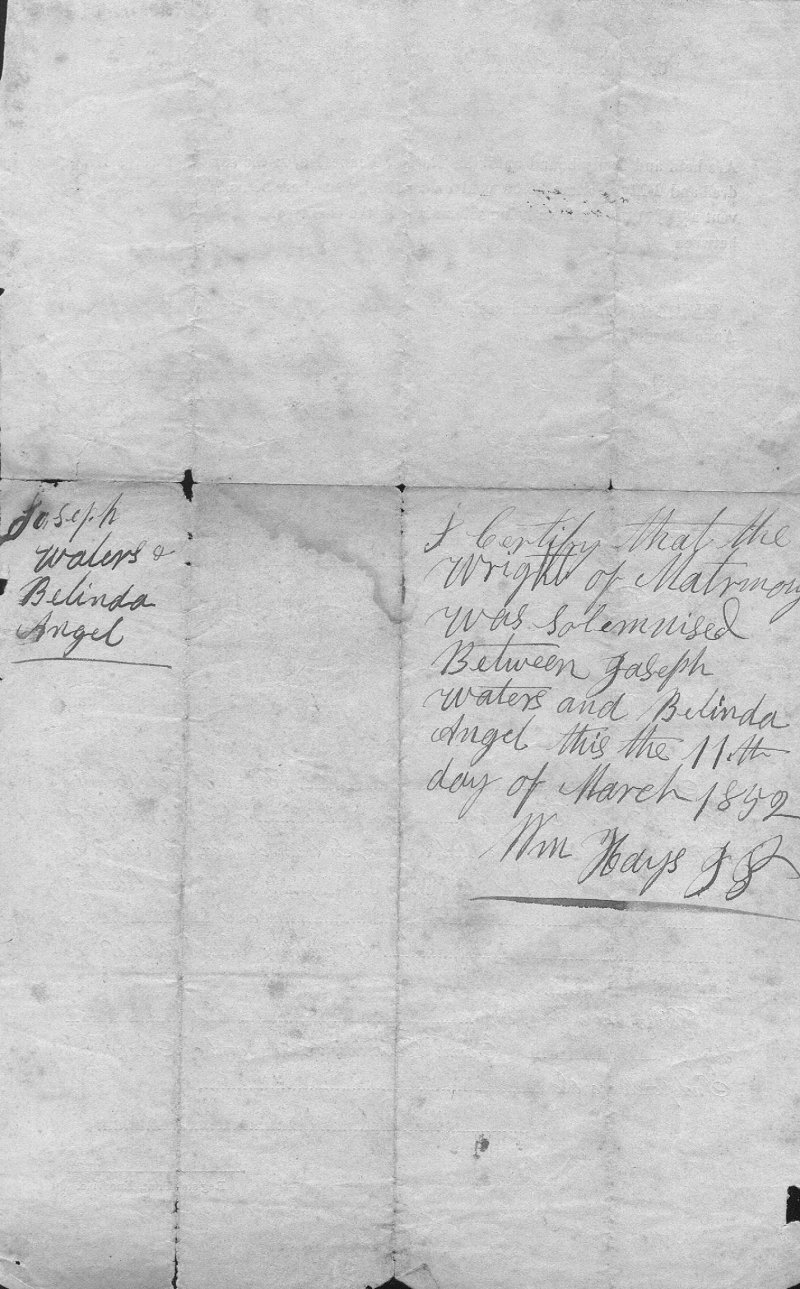 Joseph
Waters &
Belinda
Angel
I Certify that the
Wright of Matrmony
was Solemnised
Between Joseph
Waters and Belinda
Angel this the 11th
day of March 1892
Wm Hays J P